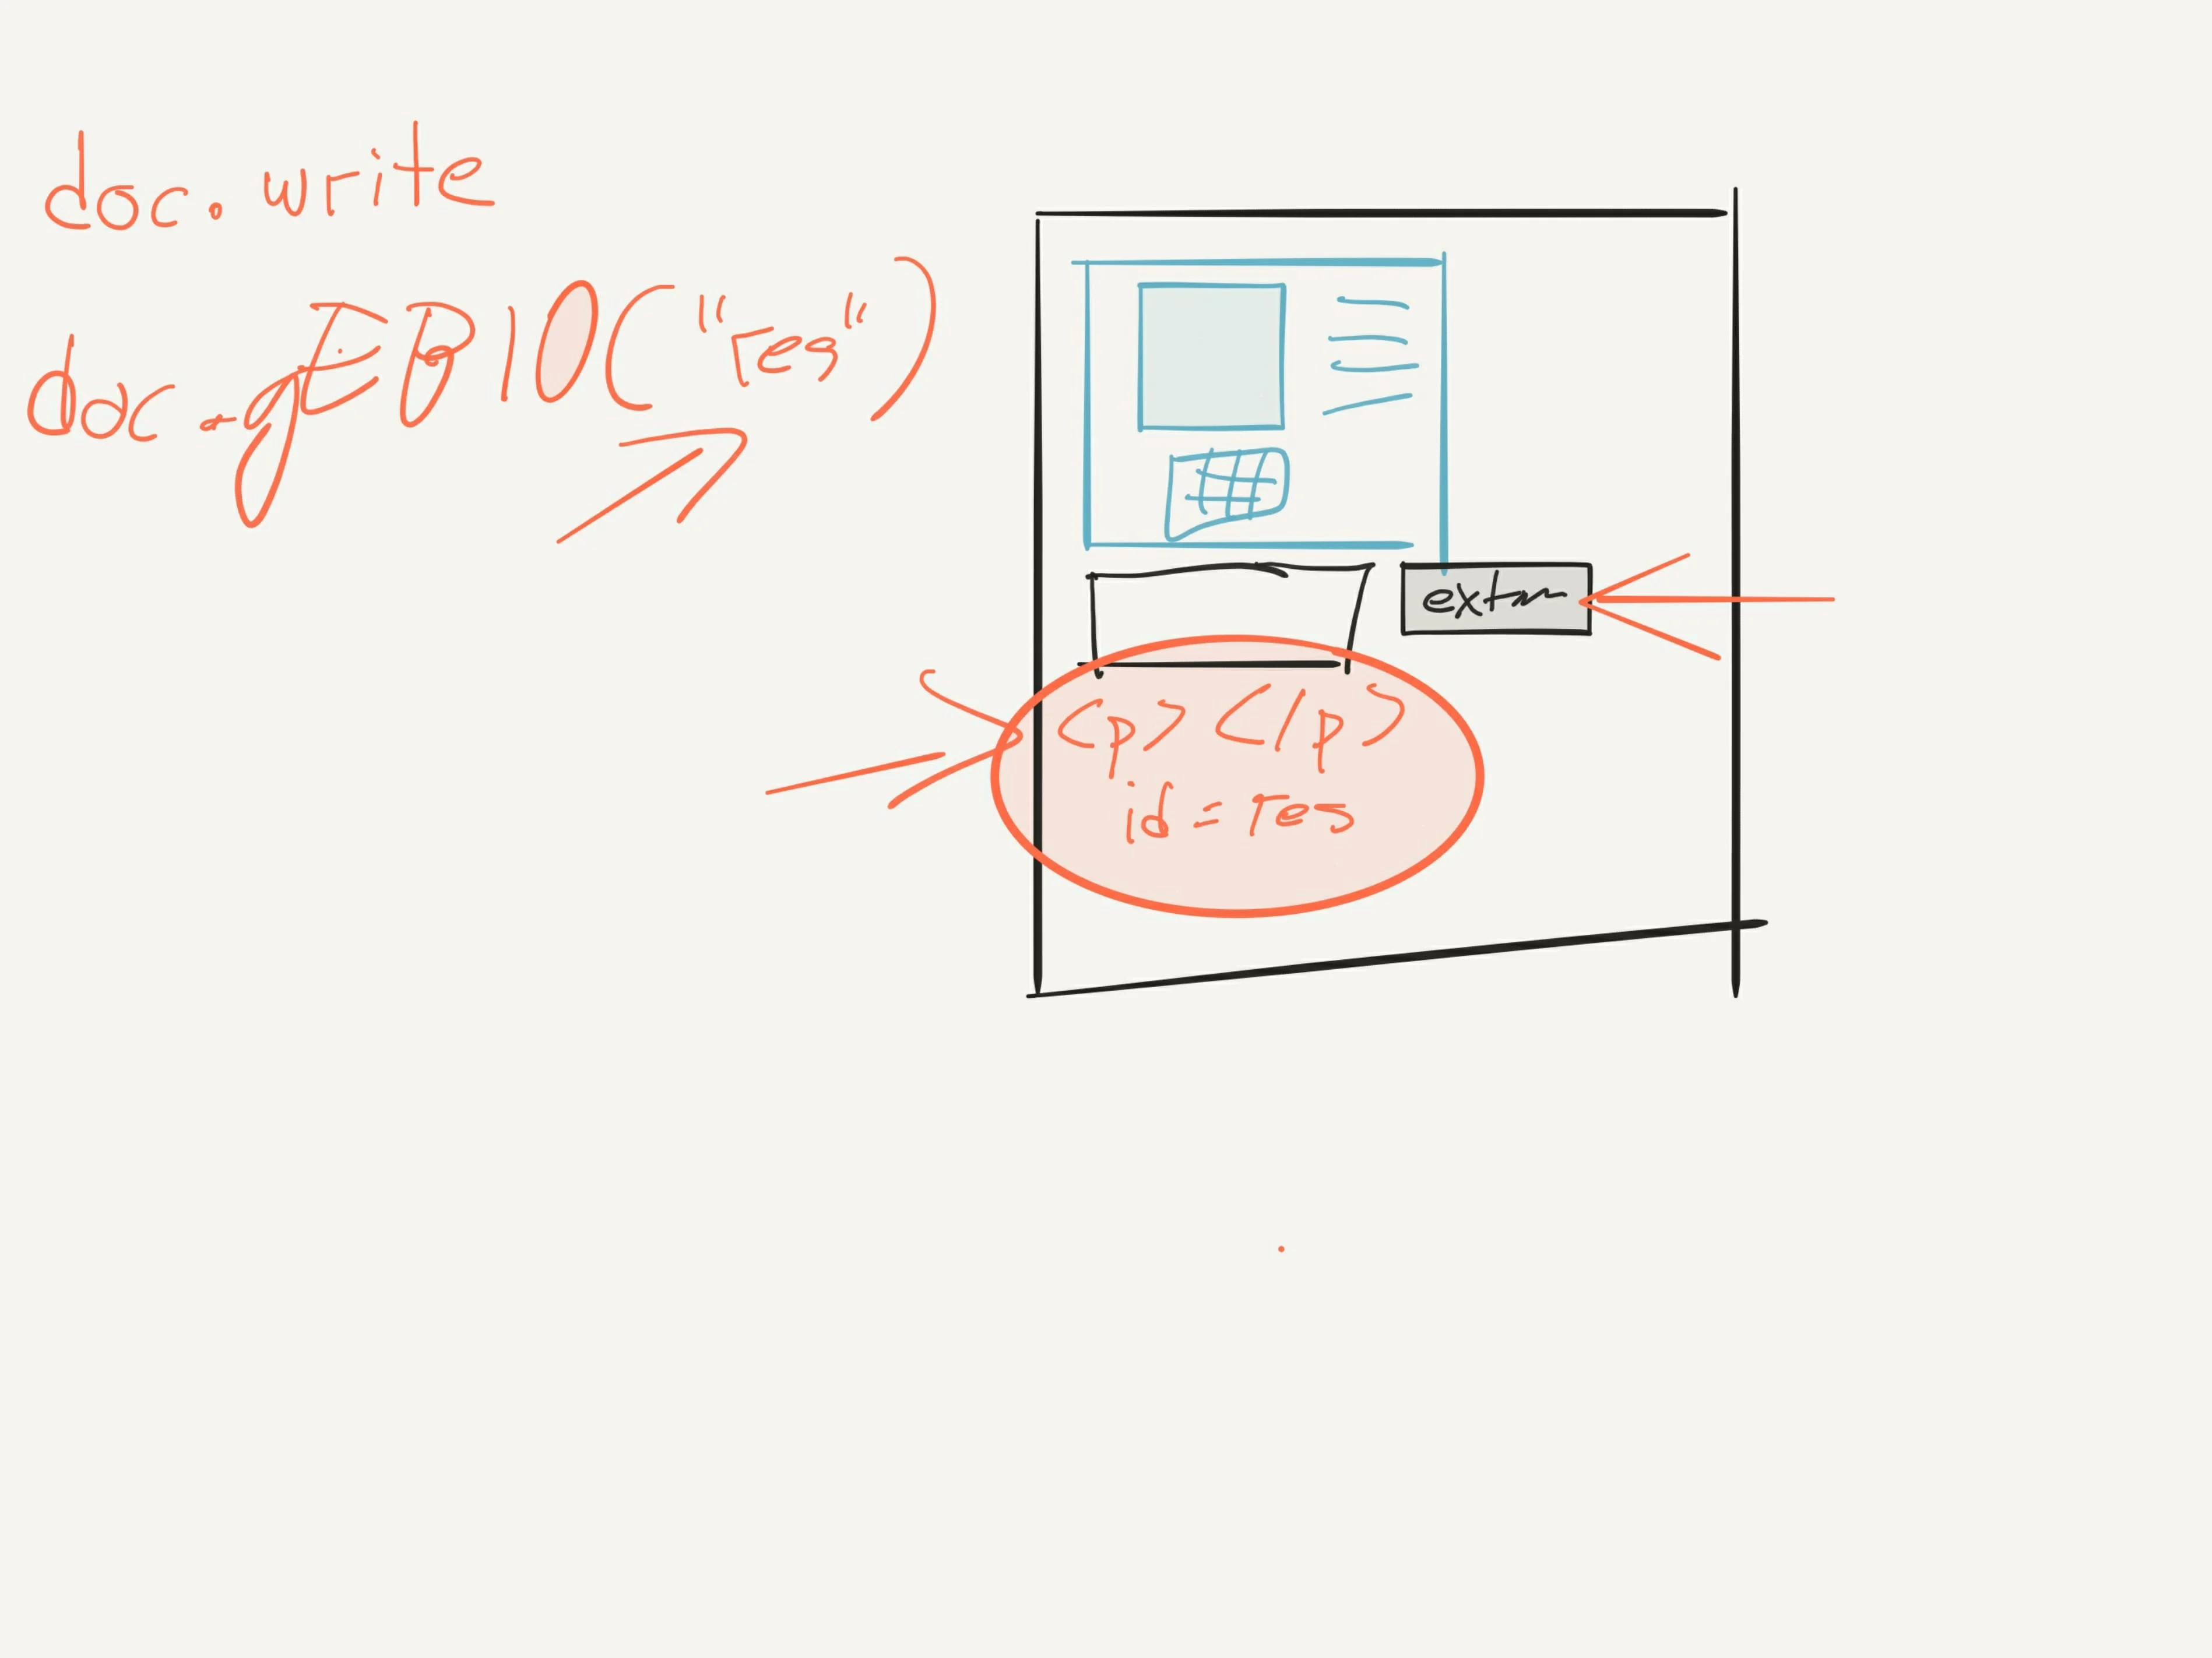 doc.write
doc.gEBID("res")
<p></p>
id=res